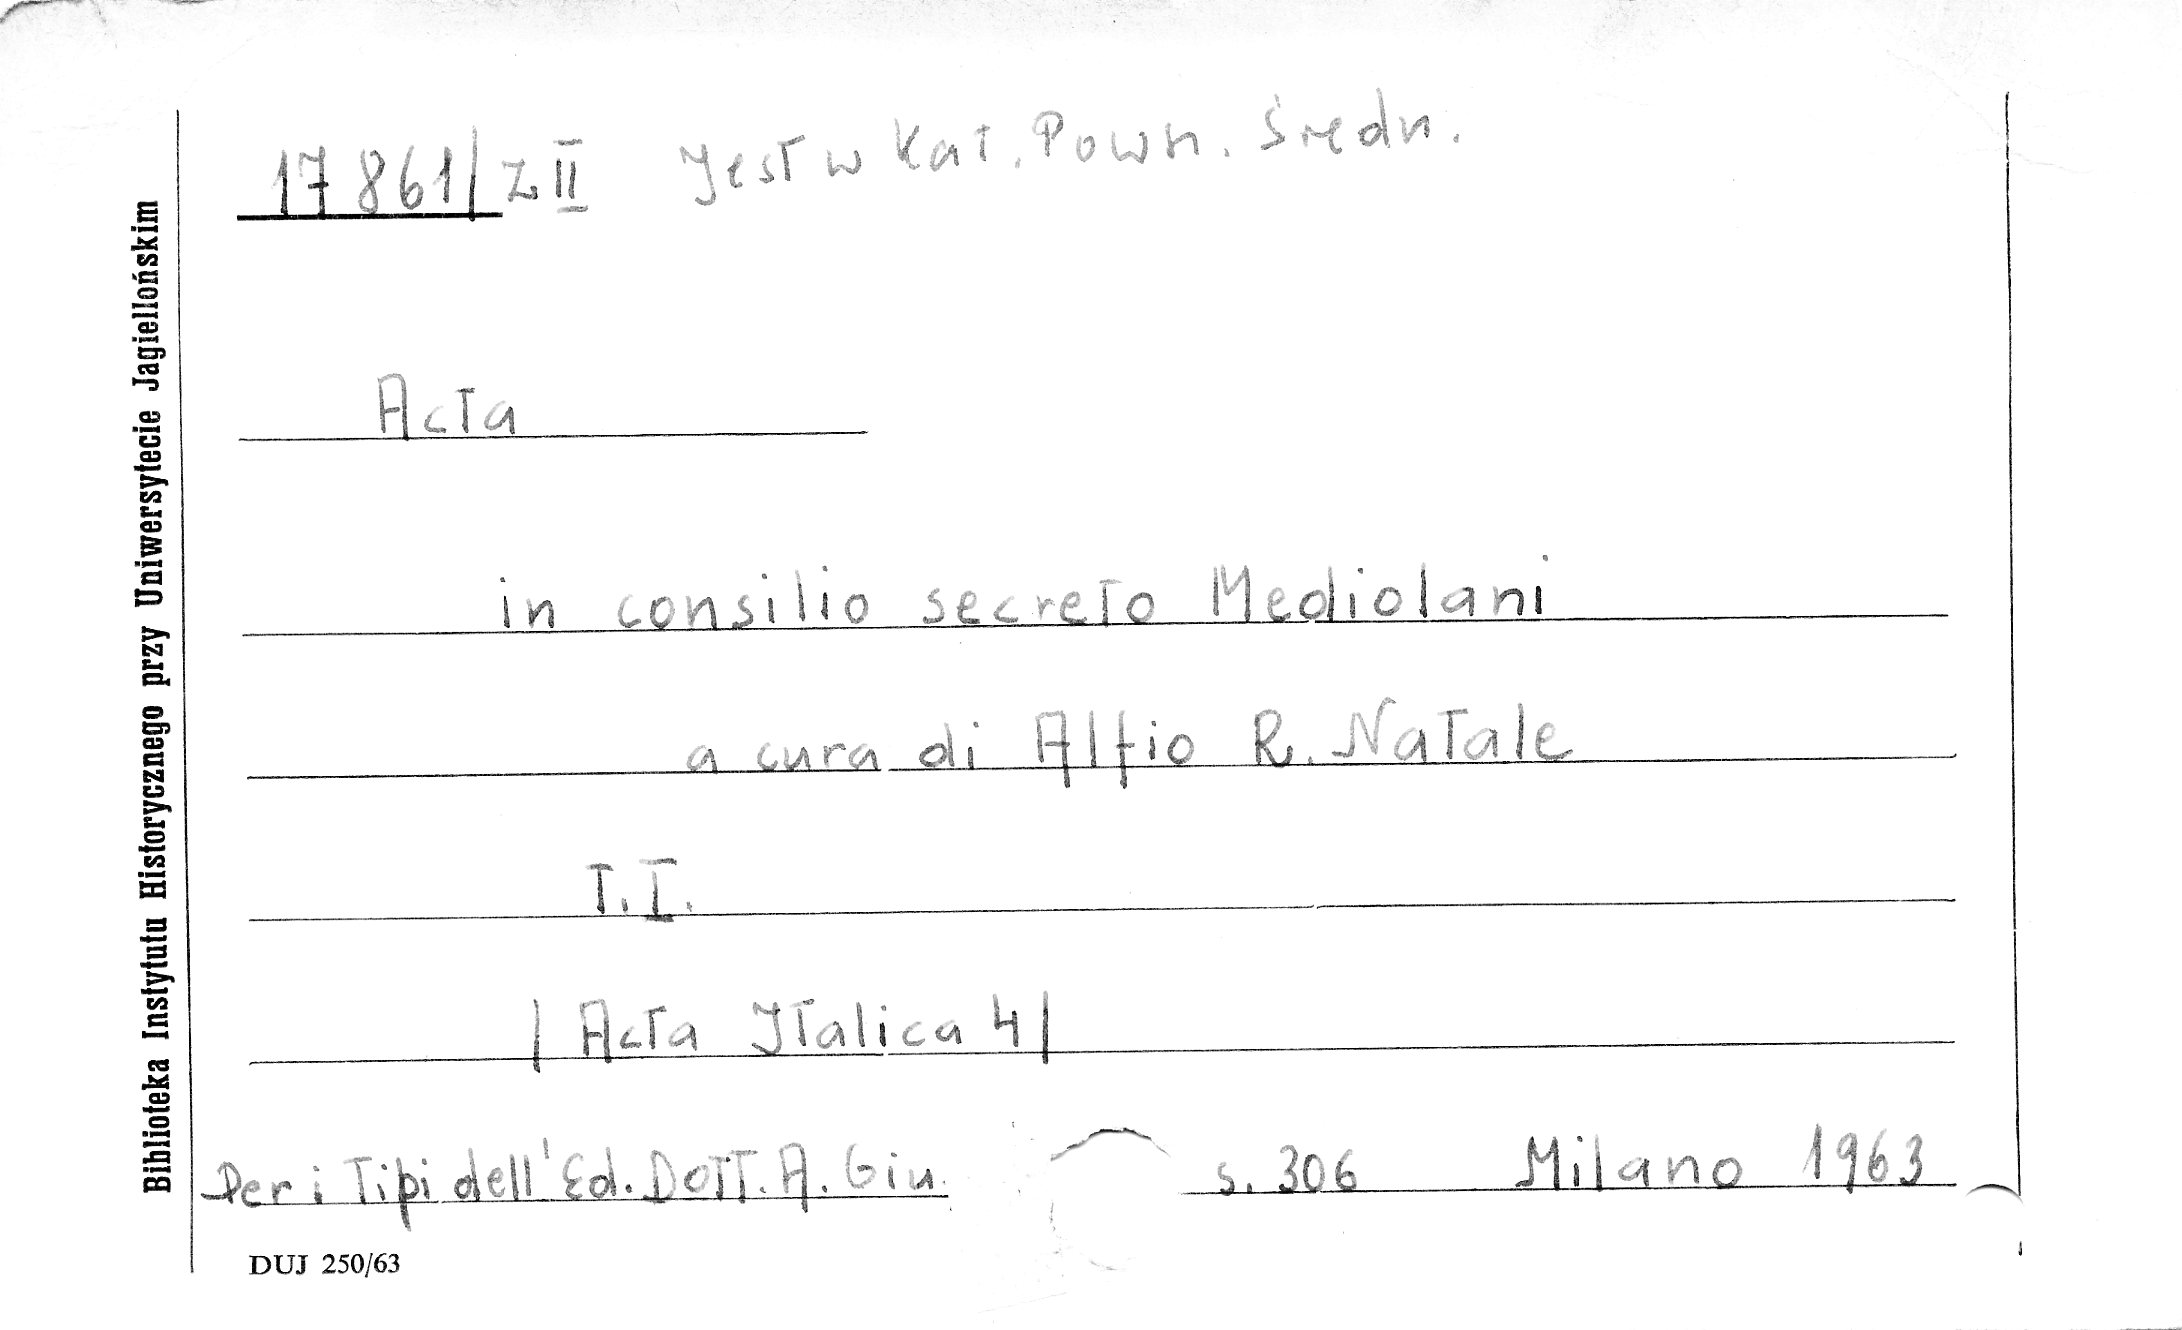 17 861/z II Jest w Kat. Powsz. Średn.
Acta
in consilio secreto Mediolani
a cura di Alfio R. Natale
T. I.
/ Acta Italica 4/
Per i Tipi dell' Ed. Dott. A. Giu. s. 306 Milano 1963
DUJ 250/63
Biblioteka Instytutu Historycznego przy Uniwersytecie Jagiellońskim